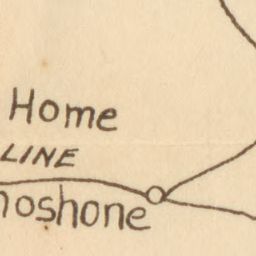 Home
LINE
hoshone